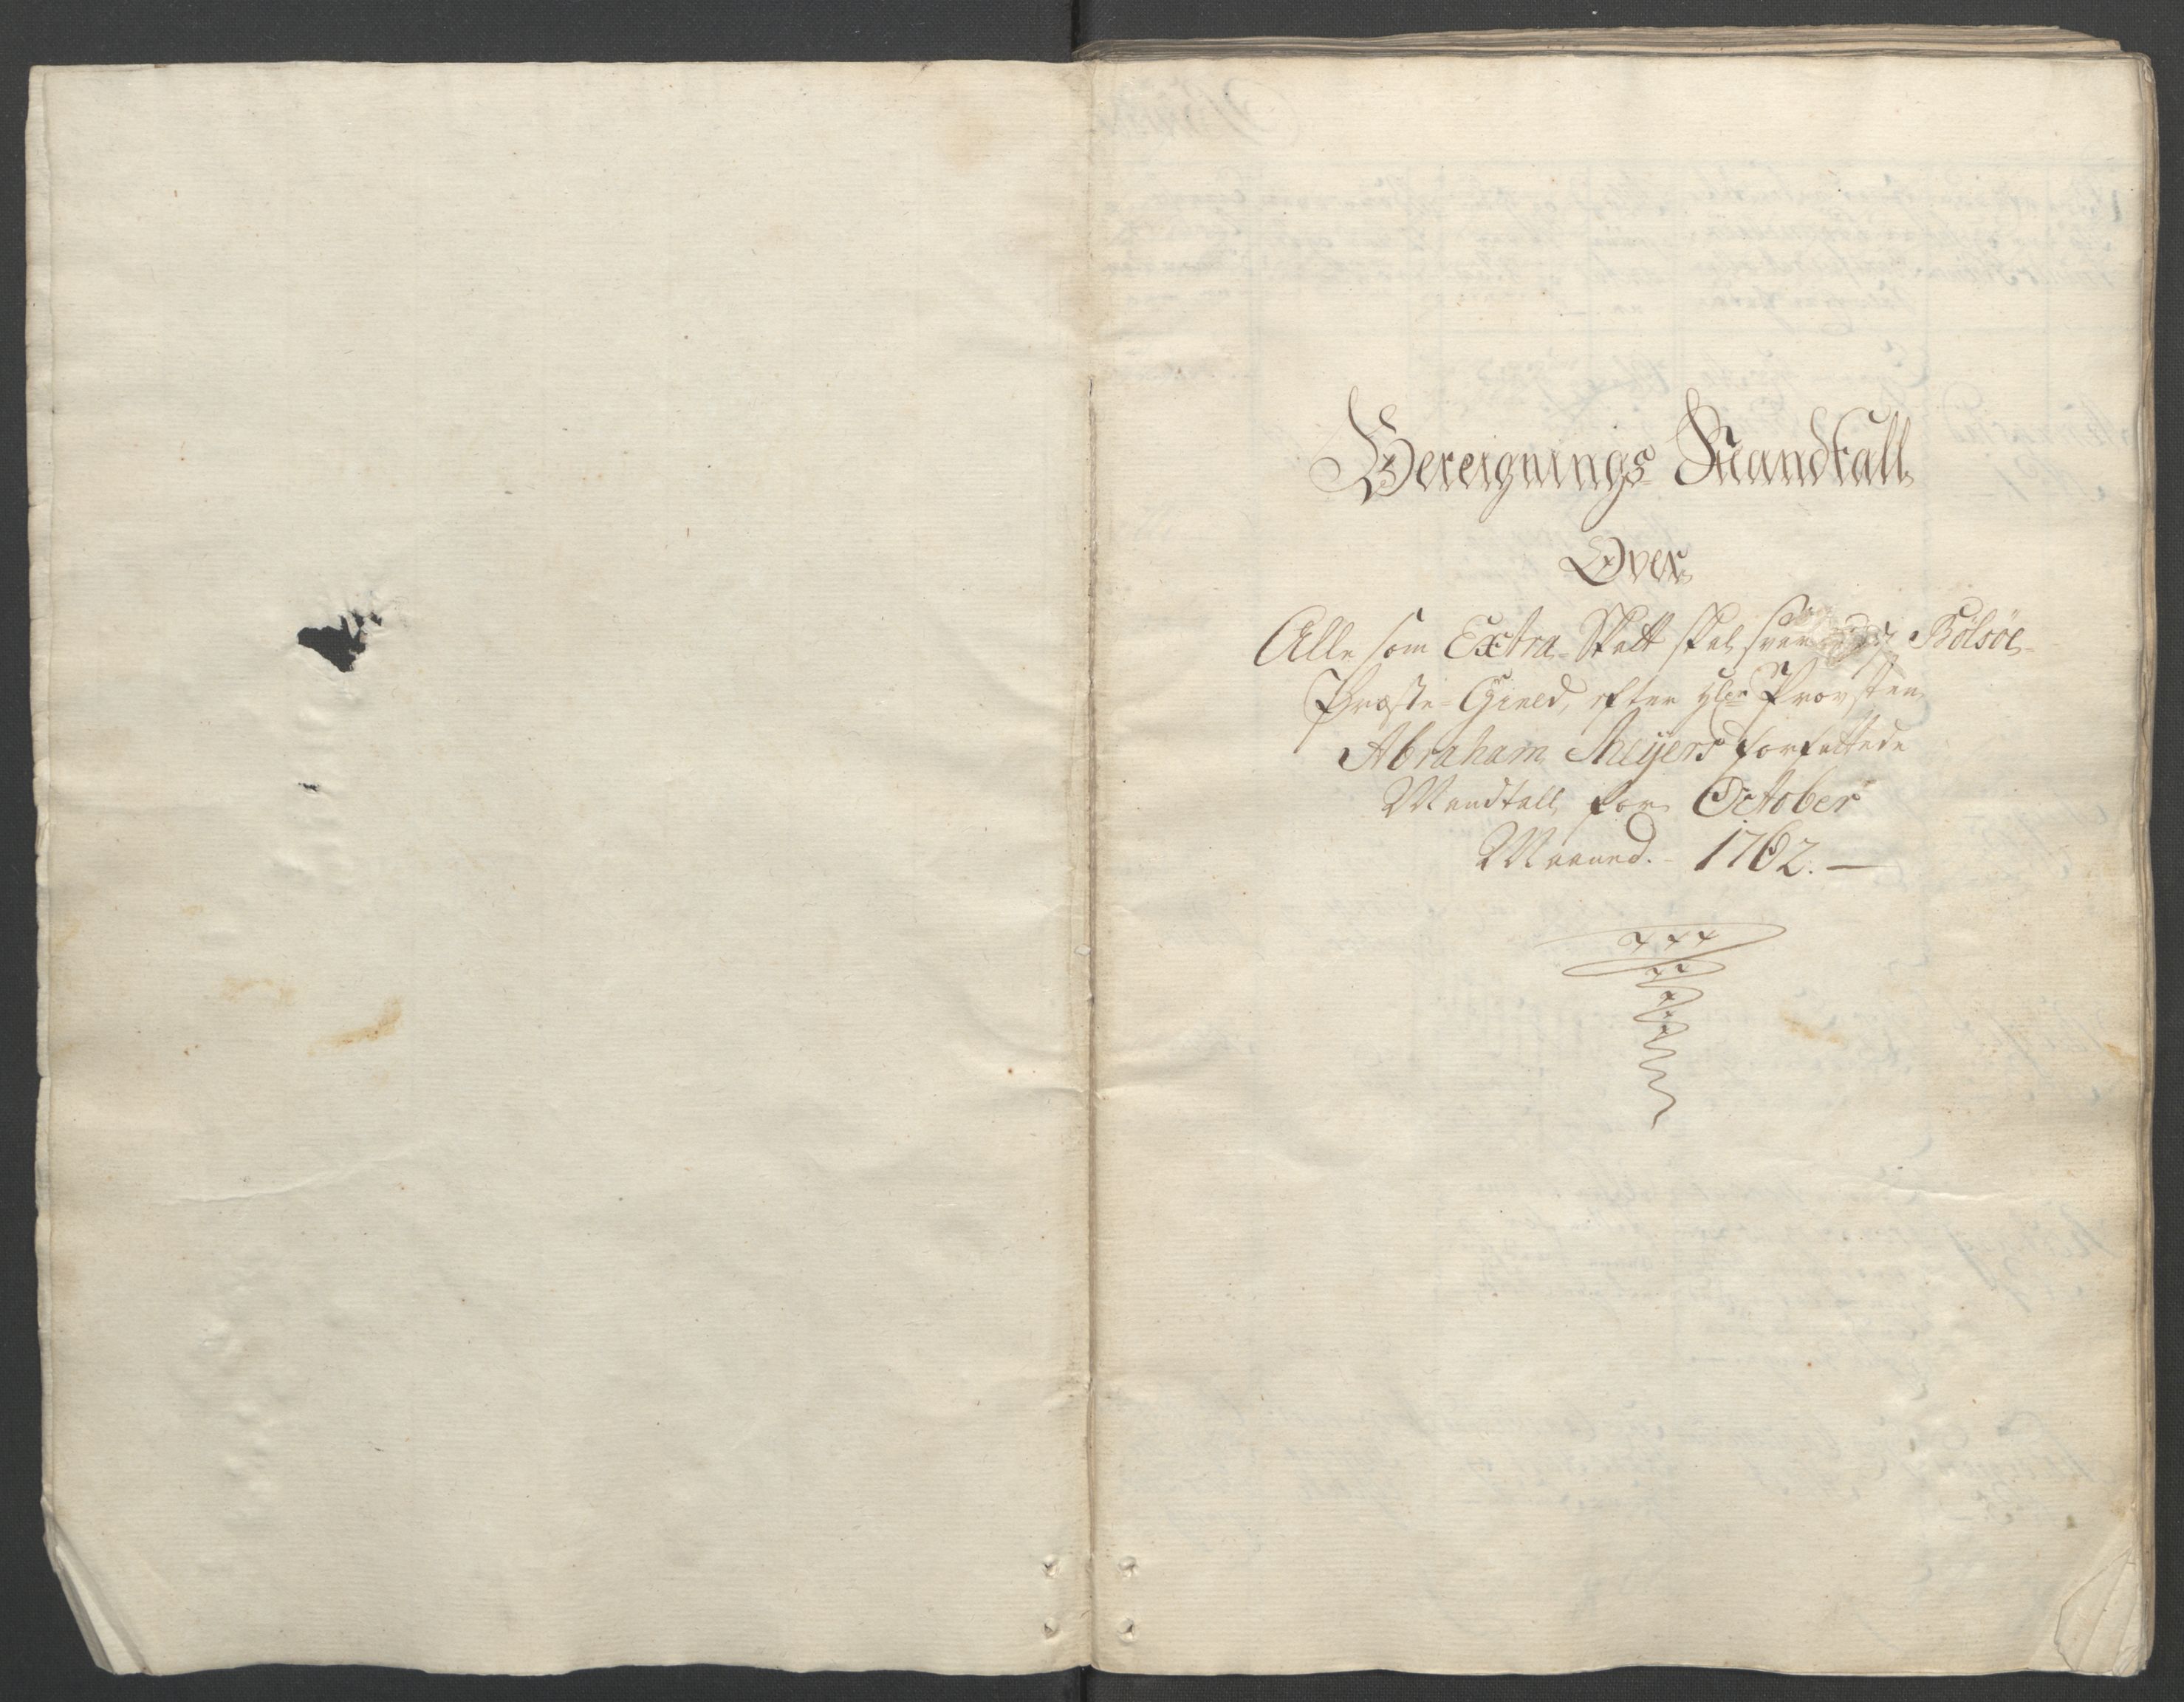 Bereignings Mandtall
Over
Alle som Extra Skatt skal svare Bolsøe
Præste-Gield, efter Hr. Provsten
Abraham Meyers forfattede
Mandtall for October
Maaned. - 1762. -